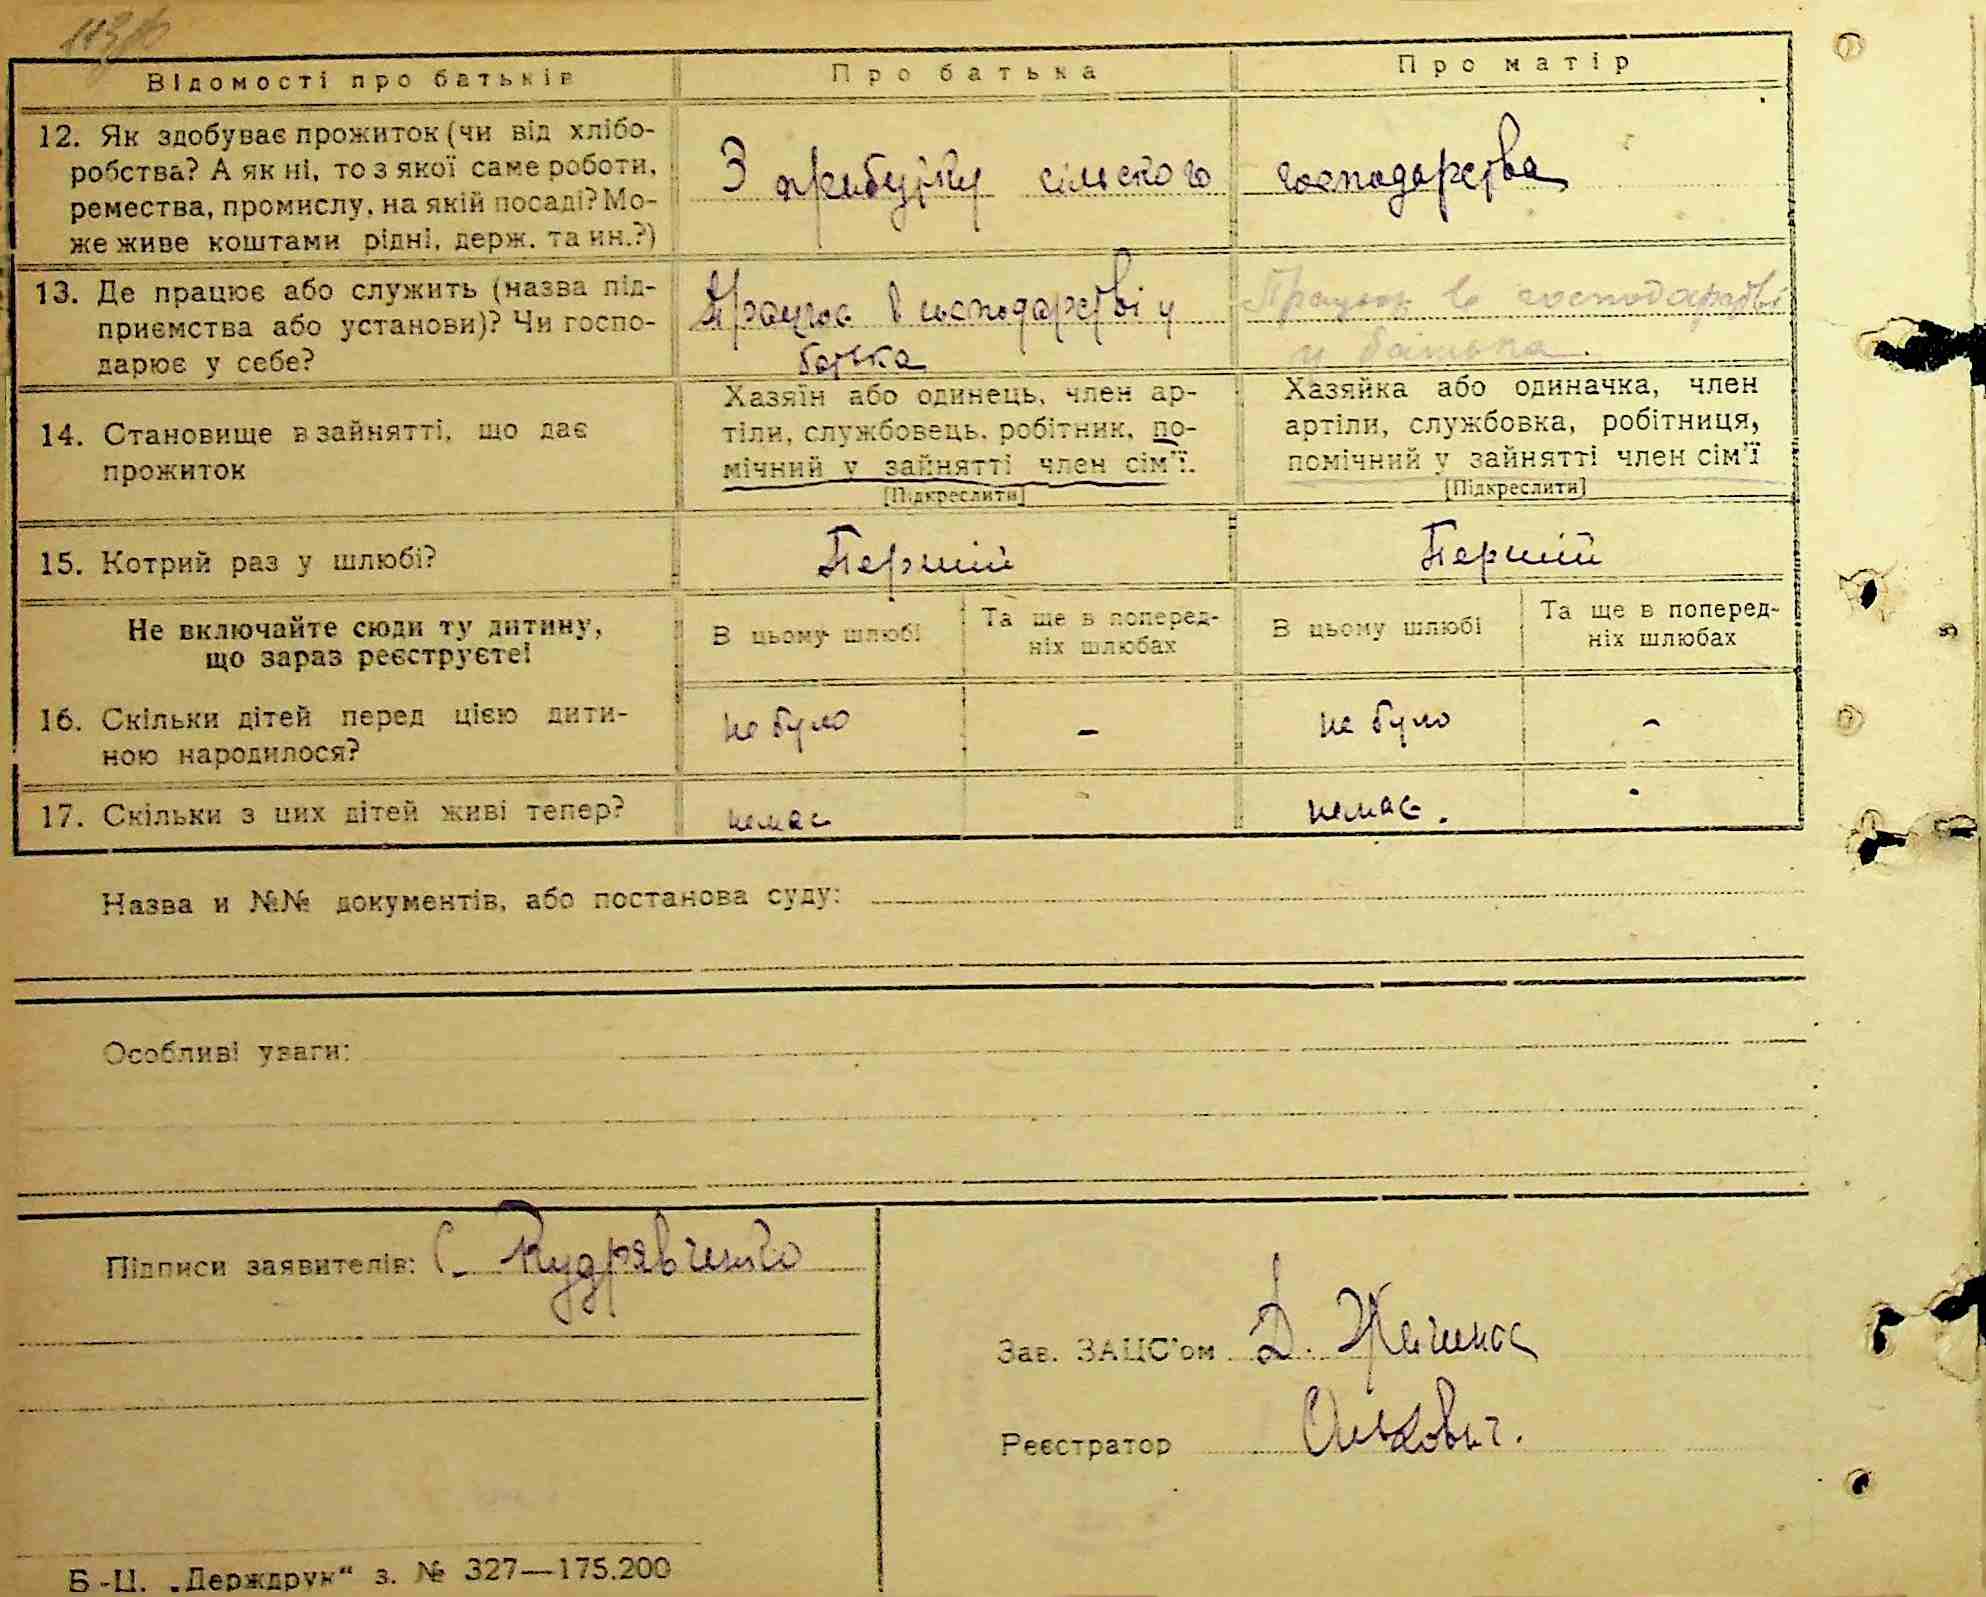 Відомості про батьків
Про батька
Про матір
12. Як здобуває прожиток (чи від хлібо-
робства? А як ні, то з якої саме роботи,
ремества, промислу, на якій посаді? Мо-
же живе коштами рідні, держ. та ин.?)
З прибутку сільского господарства
13. Де працює або служить (назва під-
приємства або установи)? Чи госпо-
дарює у себе?
Працює в господарстві у
батька
Працює в господарстві
у батька.
14. Становище в зайнятті, що дає
прожиток
Хазяїн або одинець, член ар-
тіли, службовець, робітник, по-
мічний у зайнятті член сім'ї.
[Підкреслити]
Хазяйка або одиначка, член
артіли, службовка, робітниця,
помічний у зайнятті член сім'ї
[Підкреслити]
15. Котрий раз у шлюбі?
Перший
Перший
Не включайте сюди ту дитину,
що зараз реєструєте!
В цьому шлюбі
Та ще в поперед-
ніх шлюбах
В цьому шлюбі
Та ще в поперед-
ніх шлюбах
16. Скільки дітей перед цією дити-
ною народилося?
не було
-
не було
-
17. Скільки з цих дітей живі тепер?
немає
-
немає.
-
Назва и №№ документів, або постанова суду:
Особливі уваги:
Підписи заявителів: С. Кудрявченко
Зав. ЗАЦС'ом Д.
Реєстратор
Б-Ц. „Держдрук“ з. № 327—175.200